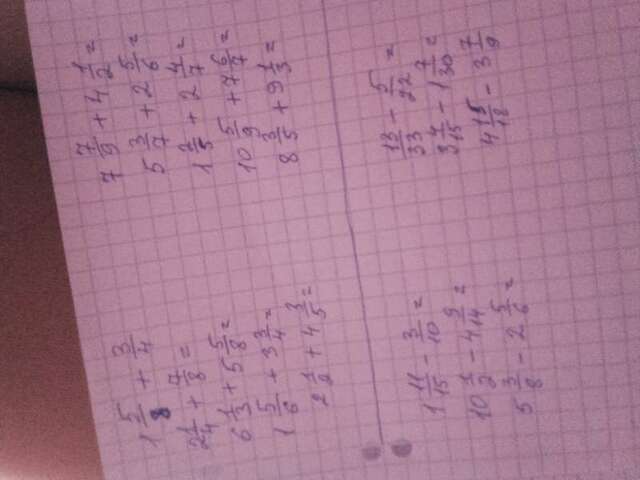 1 5/8 + 3/4
2 1/4 + 7/8 =
6 1/3 + 5 5/8 =
1 5/6 + 3 3/4 =
2 1/2 + 4 3/5 =
7 7/9 + 4 1/2 =
5 3/7 + 2 5/6 =
1 2/5 + 2 4/7 =
10 5/9 + 7 6/7 =
8 3/5 + 9 1/3 =
1 11/15 - 3/10 =
10 1/2 - 4 9/14 =
5 3/8 - 2 5/6 =
13/33 - 5/22 =
3 4/15 - 1 7/30 =
4 15/18 - 3 7/9